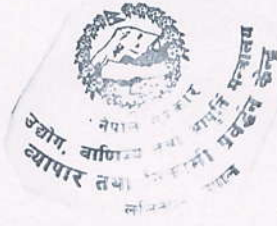 नेपाल सरकार
उद्योग, वाणिज्य तथा आपूर्ति मन्त्रालय
व्यापार तथा निकासी प्रवर्द्धन केन्द्र